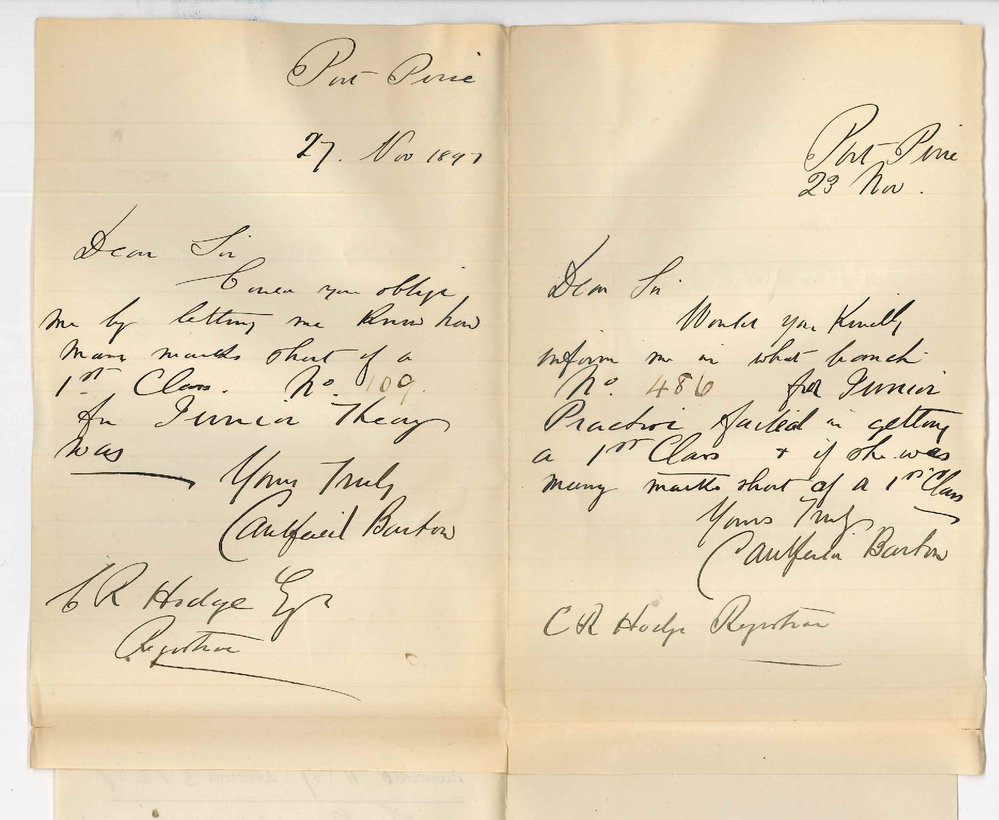 Port Pirie
27. Nov 1897
Dear Sir
Could you oblige
me by letting me know how
many marks short of a
1st Class. No. 109.
for Junior Theory
was
Yours Truly
Caulfeild Barton
C R Hodge Esqr
Registrar
Port Pirie
23 Nov.
Dear Sir
Would you Kindly
inform me in what branch
No. 486 for Junior
Practice failed in getting
a 1st Class & if she was
many marks short of a 1st Class
Yours Truly
Caulfeild Barton
C R Hodge Registrar